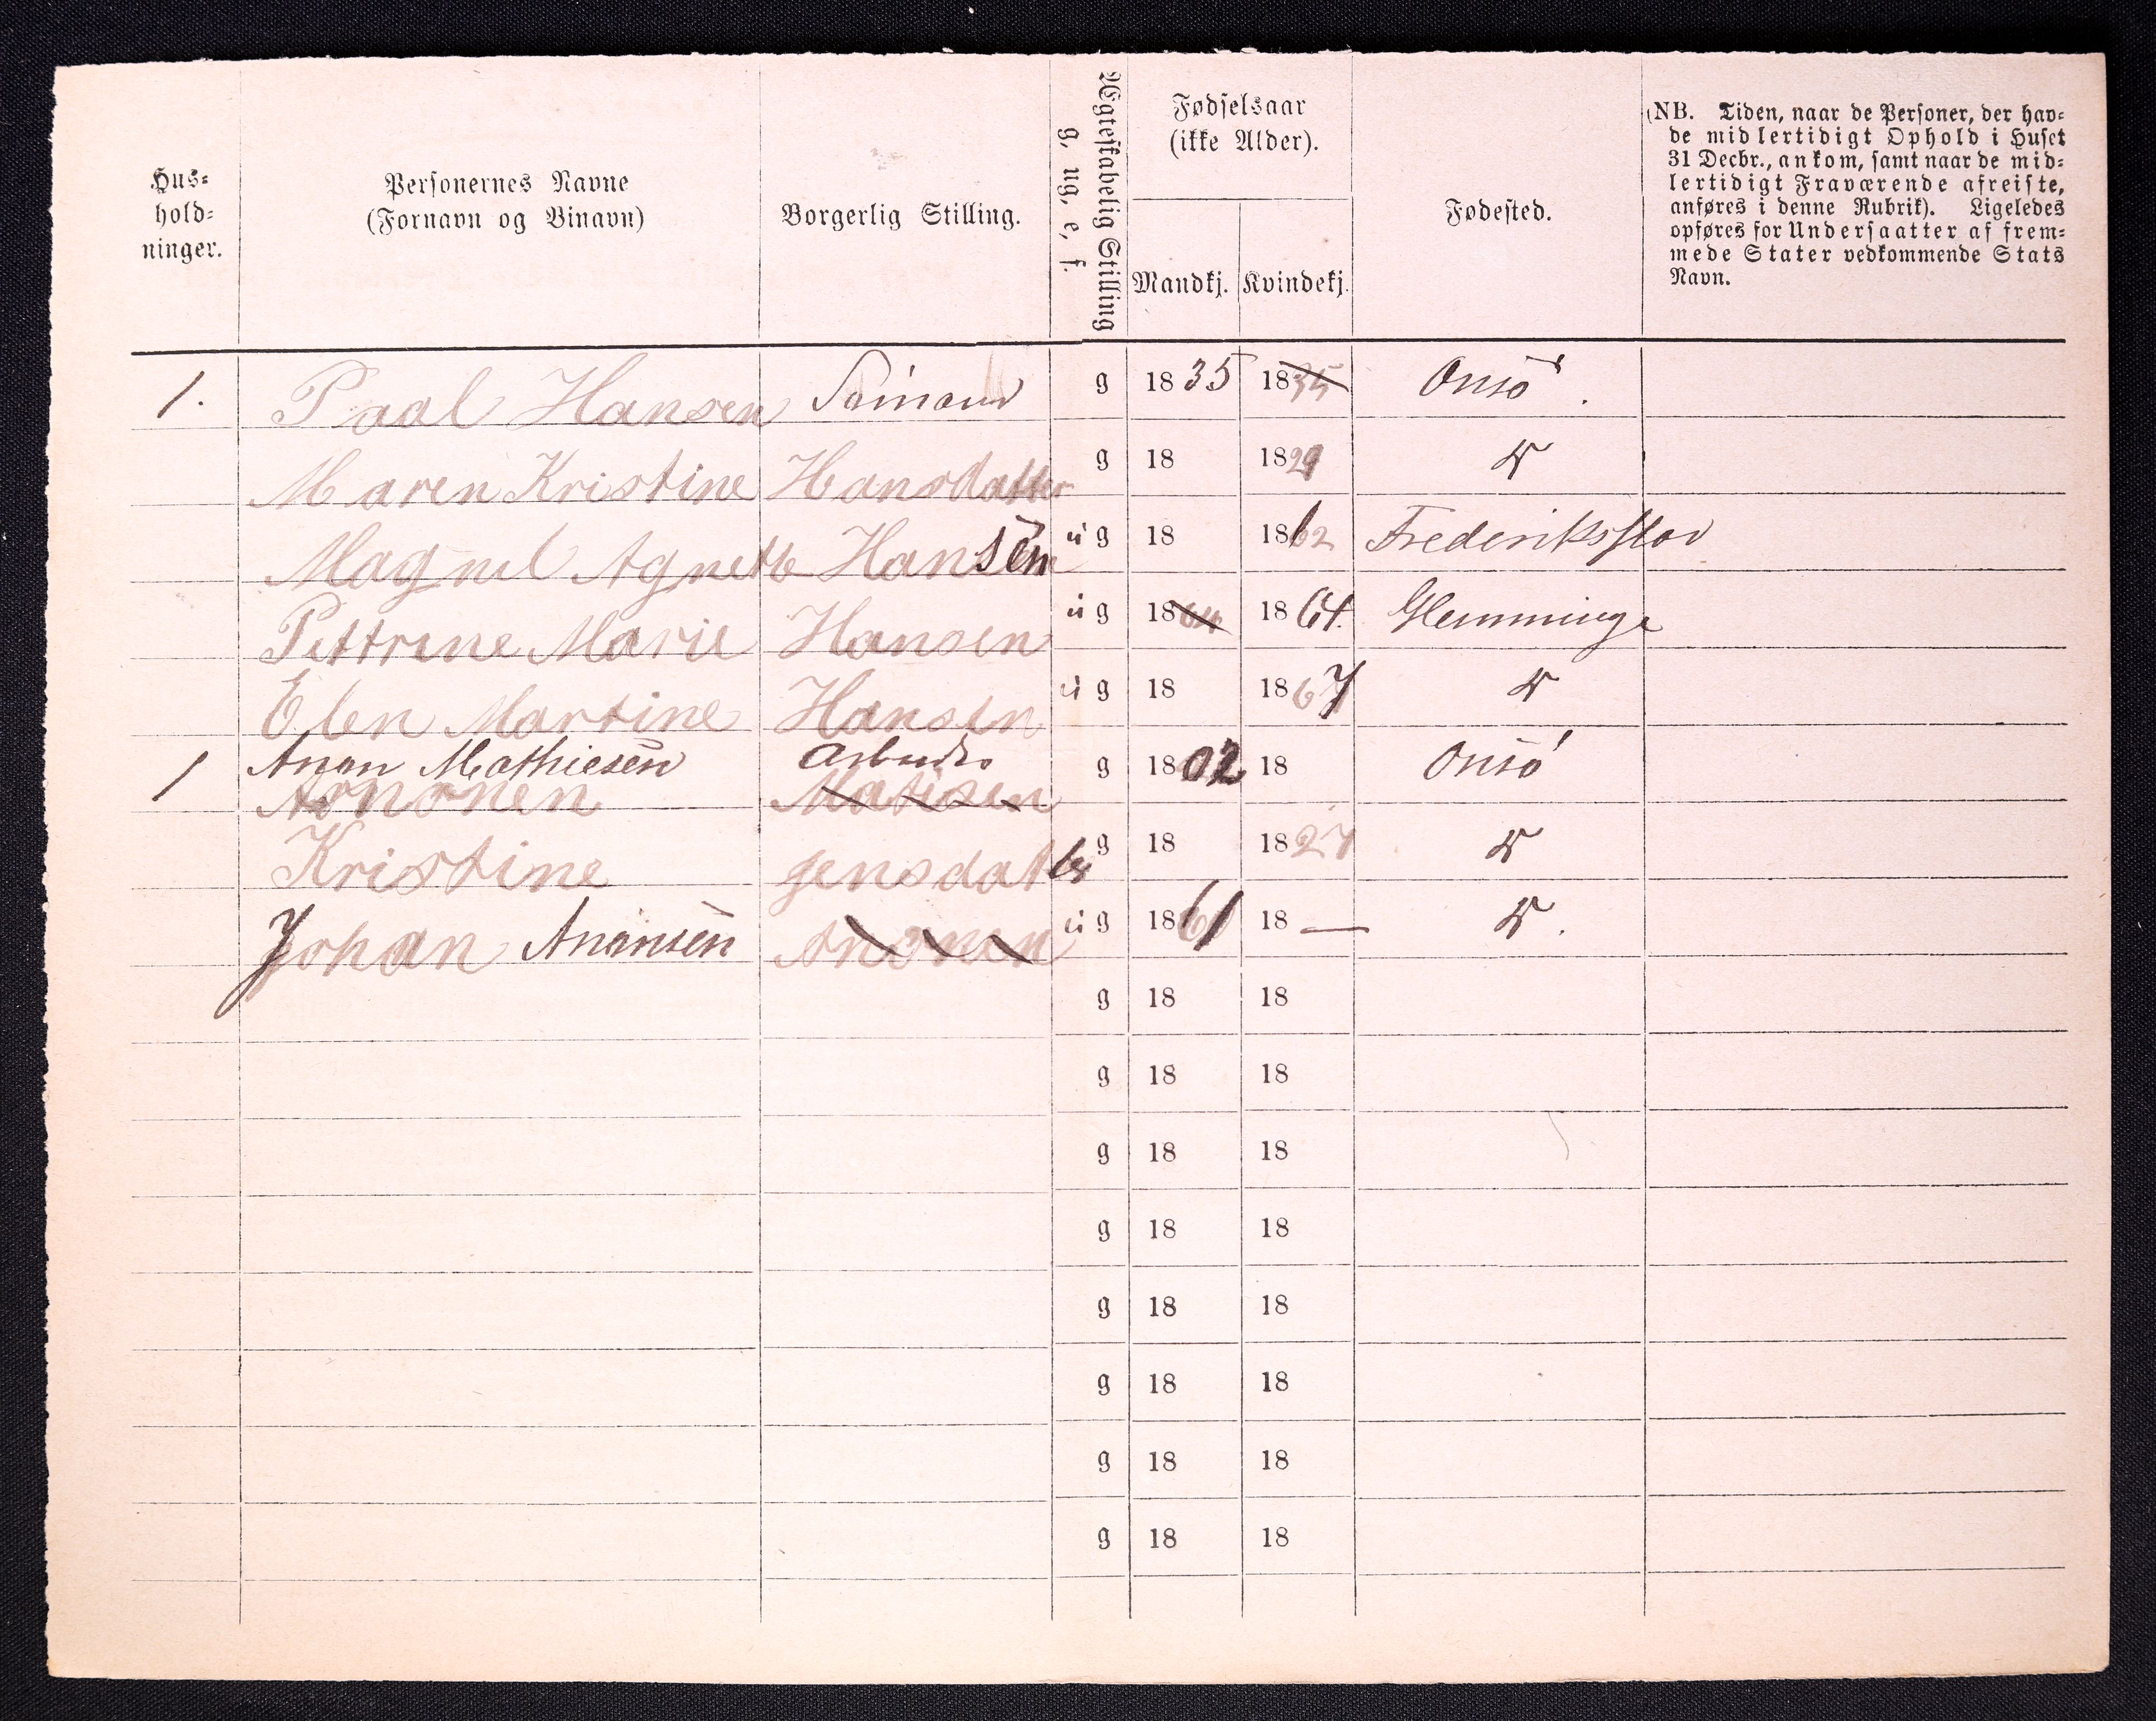 Hus-
hold-
ninger.
Personernes Navne
(Fornavn og Binavn)
Borgerlig Stilling.
Ægteskabelig Stilling
g, ug, e, f.
Fødselsaar
(ikke Alder).
Mandkj. Kvindekj.
Fødested.
(NB. Tiden, naar de Personer, der hav-
de midlertidigt Ophold i Huset
31 Decbr., ankom, samt naar de mid-
lertidigt Fraværende afreiste,
anføres i denne Rubrik). Ligeledes
opføres for Undersaatter af frem-
mede Stater vedkommende Stats
Navn.
1. Paal Hansen Sømand g 1835 1835 Onsö.
Maren Kristine Hansdatter g 18 1829 do
Magnil Agnette Hansen ug 18 1862 Frederiksstad
Pettrine Marie Hansen ug 1864 1864. Glemminge
Elen Martine Hansen ug 18 1867 do
1 Anon Mathiesen Arbeider g 1802 18 Onsö
Matisen
Kristine Jensdatter g 18 1827 do
Johan Anonsen ug 1861 18 — do.
g 18 18
g 18 18
g 18 18
g 18 18
g 18 18
g 18 18
g 18 18
g 18 18